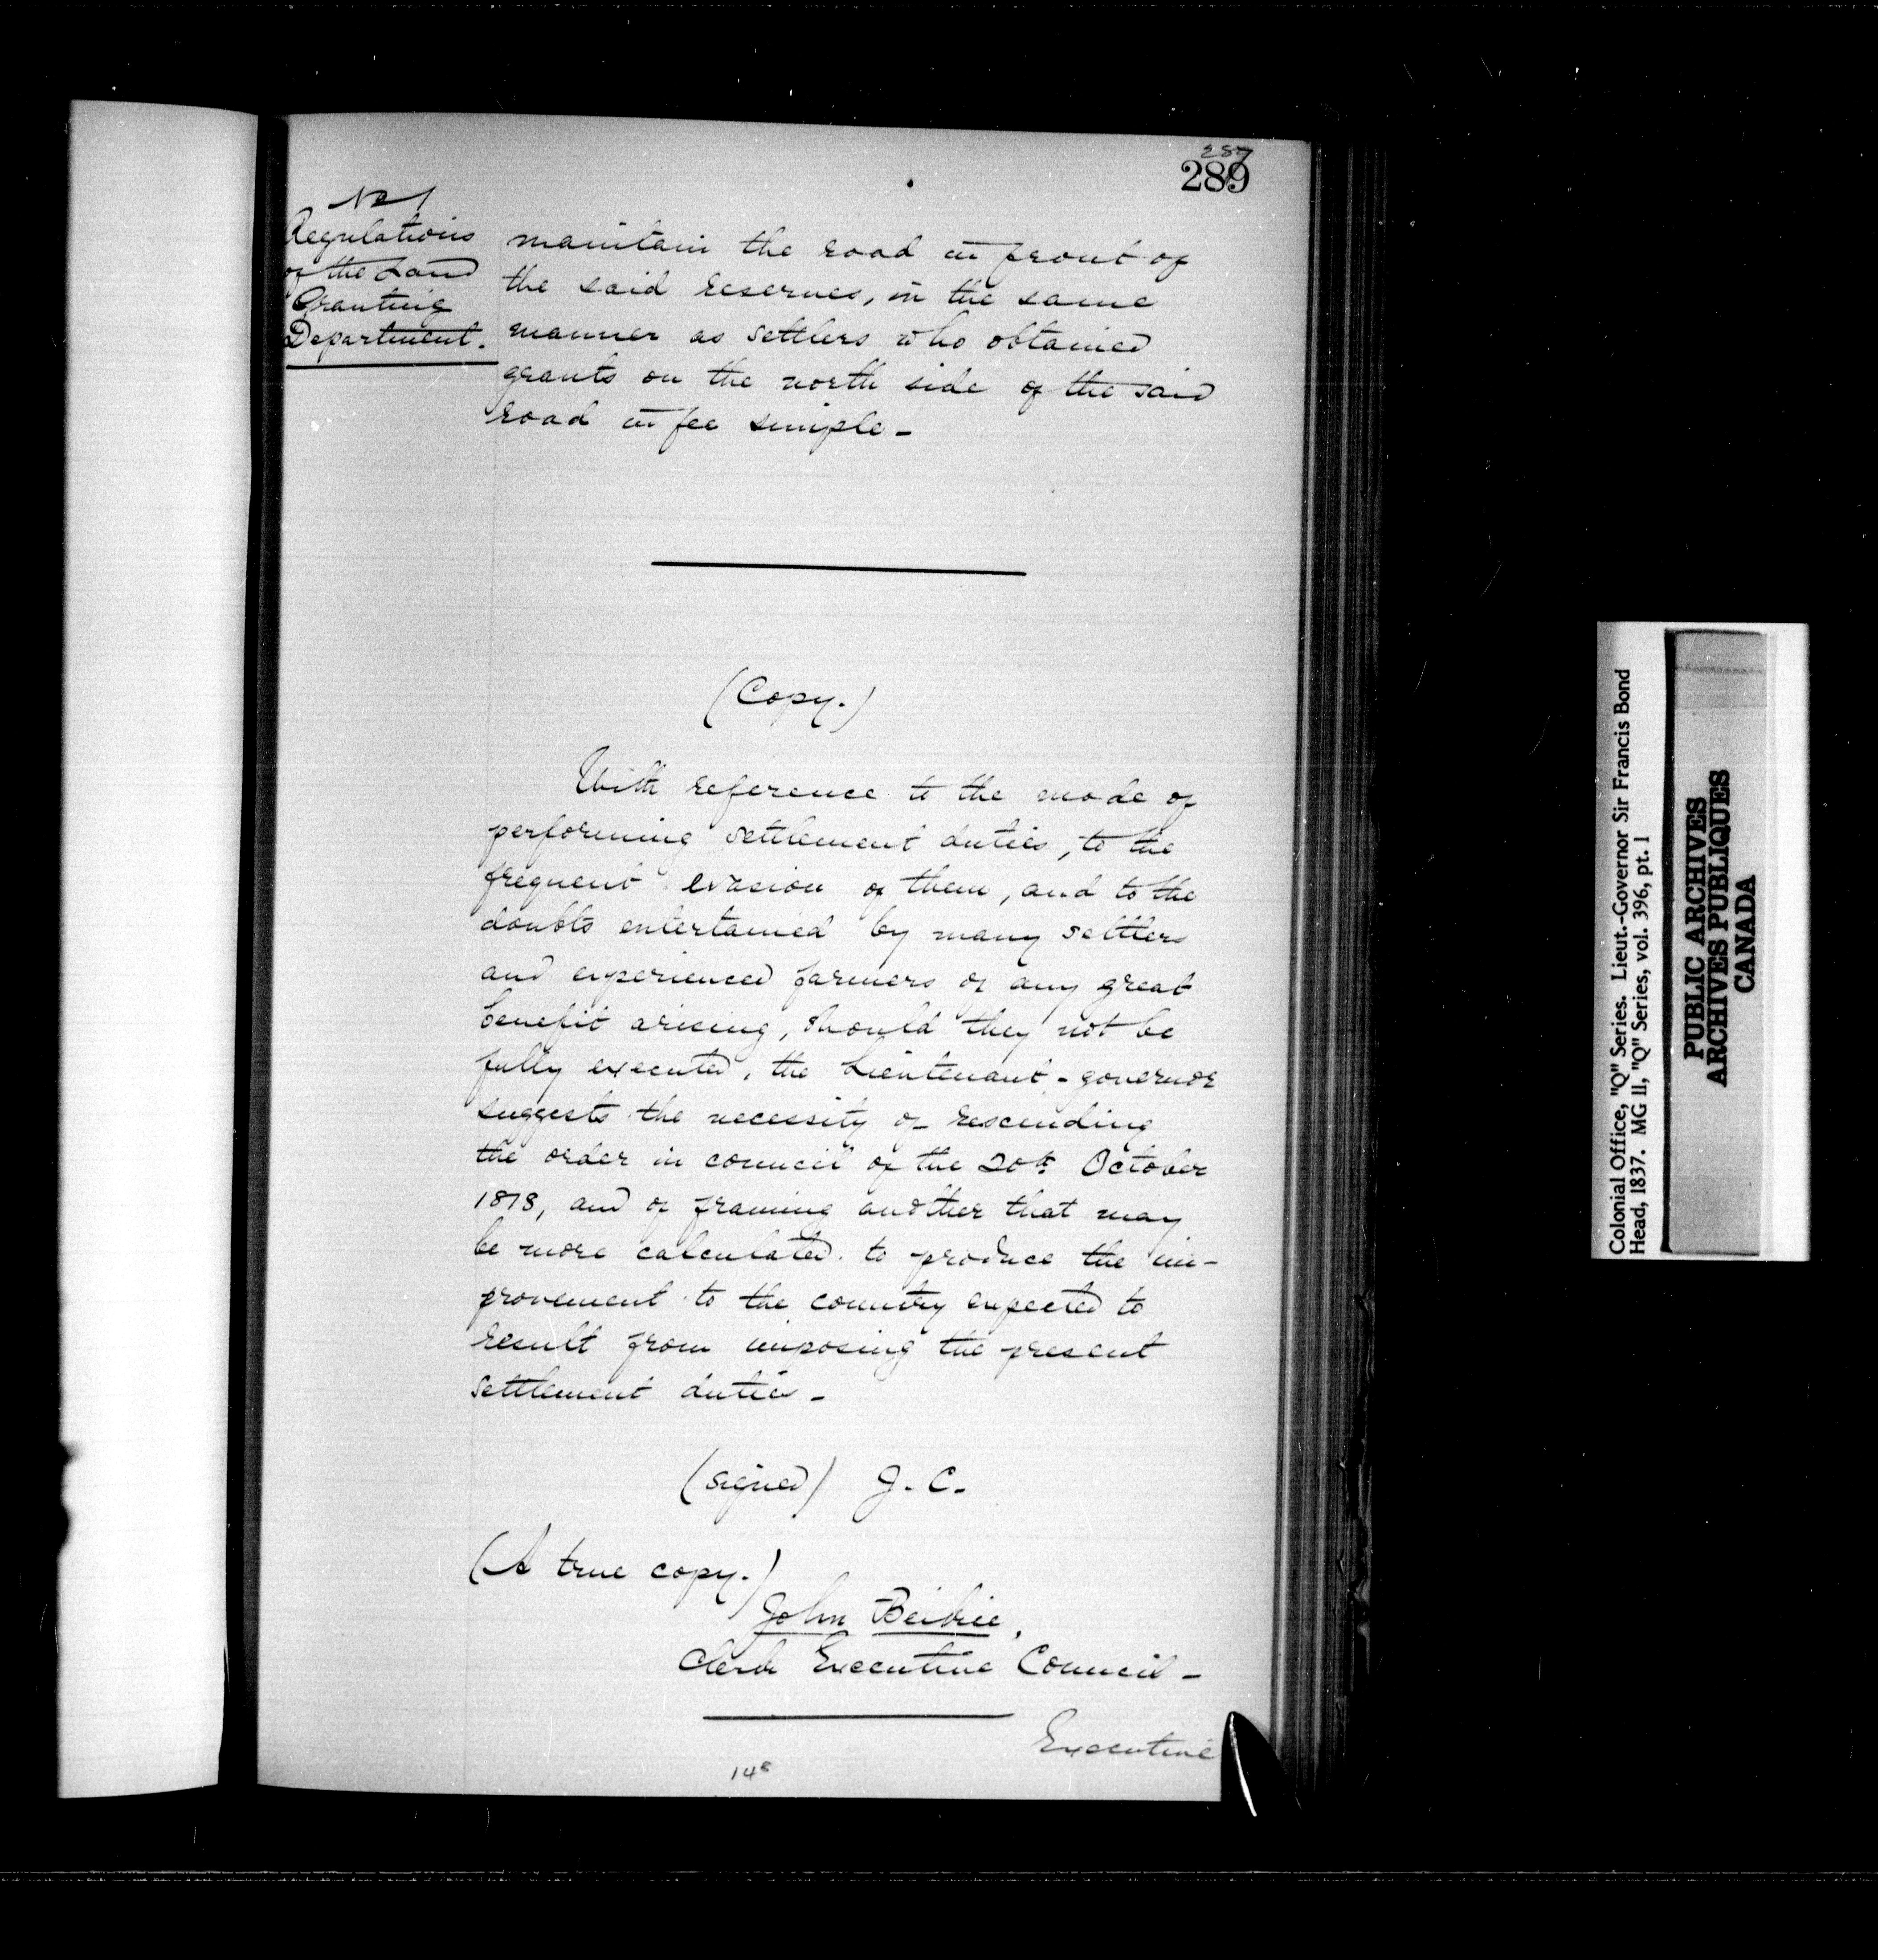 287
289
No 1
Regulations
of the Land
Granting
Department.
maintain the road in front of
the said reserves, in the same
manner as settlers who obtained
grants on the north side of the said
road in fee simple -
(Copy.)
With reference to the mode of
performing settlement duties, to the
frequent evasion of them, and to the
doubts entertained by many settlers
and experienced farmers of any great
benefit arising, should they not be
fully executed, the Lieutenant-governor
suggests the necessity of rescinding
the order in council of the 20th October
1818, and of framing another that may
be more calculated to produce the im-
provement to the country expected to
result from imposing the present
settlement duties -
(signed) J. C.
(A true copy.)
John Beikie,
Clerk Executive Council -
Executive
148
Colonial Office, "Q" Series. Lieut.-Governor Sir Francis Bond
Head, 1837. MG 11, "Q" Series, vol. 396, pt. 1
PUBLIC ARCHIVES
ARCHIVES PUBLIQUES
CANADA